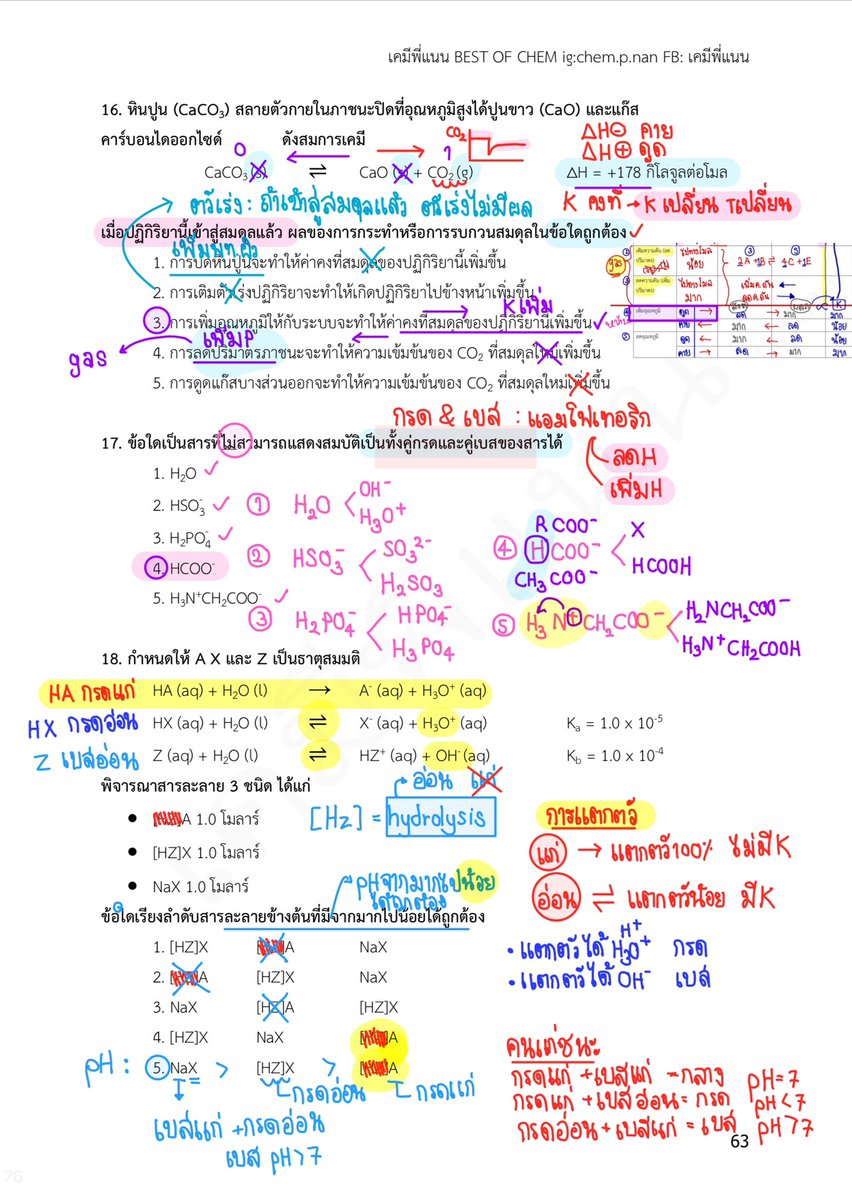 เคมีพี่แนน BEST OF CHEM ig:chem.p.nan FB: เคมีพี่แนน
16. หินปูน (CaCO₃) สลายตัวภายในภาชนะปิดที่อุณหภูมิสูงได้ปูนขาว (CaO) และแก๊ส
คาร์บอนไดออกไซด์ ดังสมการเคมี
CO₂
ΔH⊖ คาย
ΔH⊕ ดูด
0 1
CaCO₃(s) ⇌ CaO (s) + CO₂ (g) ΔH = +178 กิโลจูลต่อโมล
ตัวเร่ง : ถ้าเข้าสู่สมดุลแล้ว ตัวเร่งไม่มีผล
K คงที่ → K เปลี่ยน T เปลี่ยน
เมื่อปฏิกิริยานี้เข้าสู่สมดุลแล้ว ผลของการกระทำหรือการรบกวนสมดุลในข้อใดถูกต้อง
เพิ่มพท.ผิว
1. การบดหินปูนจะทำให้ค่าคงที่สมดุลของปฏิกิริยานี้เพิ่มขึ้น
2. การเติมตัวเร่งปฏิกิริยาจะทำให้เกิดปฏิกิริยาไปข้างหน้าเพิ่มขึ้น
K เพิ่ม
3. การเพิ่มอุณหภูมิให้กับระบบจะทำให้ค่าคงที่สมดุลของปฏิกิริยานี้เพิ่มขึ้น
เพิ่มP
gas
4. การลดปริมาตรภาชนะจะทำให้ความเข้มข้นของ CO₂ ที่สมดุลใหม่เพิ่มขึ้น
5. การดูดแก๊สบางส่วนออกจะทำให้ความเข้มข้นของ CO₂ ที่สมดุลใหม่เพิ่มขึ้น
กรด & เบส : แอมโฟเทอริก
ลดH
เพิ่มH
17. ข้อใดเป็นสารที่ไม่สามารถแสดงสมบัติเป็นทั้งคู่กรดและคู่เบสของสารได้
1. H₂O
2. HSO₃⁻
3. H₂PO₄⁻
4. HCOO⁻
5. H₃N⁺CH₂COO⁻
① H₂O < OH⁻
H₃O⁺
② HSO₃⁻ < SO₃²⁻
H₂SO₃
③ H₂PO₄⁻ < HPO₄⁻
H₃PO₄
R COO⁻
④ HCOO⁻ < X
HCOOH
CH₃COO⁻
⑤ H₃N⁺CH₂COO⁻ < H₂NCH₂COO⁻
H₃N⁺CH₂COOH
18. กำหนดให้ A X และ Z เป็นธาตุสมมติ
HA กรดแก่ HA (aq) + H₂O (l) → A⁻ (aq) + H₃O⁺ (aq)
HX กรดอ่อน HX (aq) + H₂O (l) ⇌ X⁻ (aq) + H₃O⁺ (aq) Kₐ = 1.0 x 10⁻⁵
Z เบสอ่อน Z (aq) + H₂O (l) ⇌ HZ⁺ (aq) + OH⁻(aq) K_b = 1.0 x 10⁻⁴
พิจารณาสารละลาย 3 ชนิด ได้แก่
อ่อน แก่
[HZ] = hydrolysis
• A 1.0 โมลาร์
• [HZ]X 1.0 โมลาร์
• NaX 1.0 โมลาร์
การแตกตัว
แก่ → แตกตัว100% ไม่มีK
อ่อน ⇌ แตกตัวน้อย มีK
pHจากมากไปน้อย
ได้ถูกต้อง
ข้อใดเรียงลำดับสารละลายข้างต้นที่มีจากมากไปน้อยได้ถูกต้อง
1. [HZ]X A NaX
2. A [HZ]X NaX
3. NaX [HZ]A [HZ]X
4. [HZ]X NaX A
pH : 5. NaX > [HZ]X > A
H⁺
• แตกตัวได้ H₃O⁺ กรด
• แตกตัวได้ OH⁻ เบส
กรดอ่อน
กรดแก่
เบสแก่ +กรดอ่อน
เบส pH>7
คนแต่ชนะ
กรดแก่ +เบสแก่ =กลาง pH=7
กรดแก่ +เบสอ่อน= กรด pH<7
กรดอ่อน+เบสแก่ = เบส pH>7
63
76